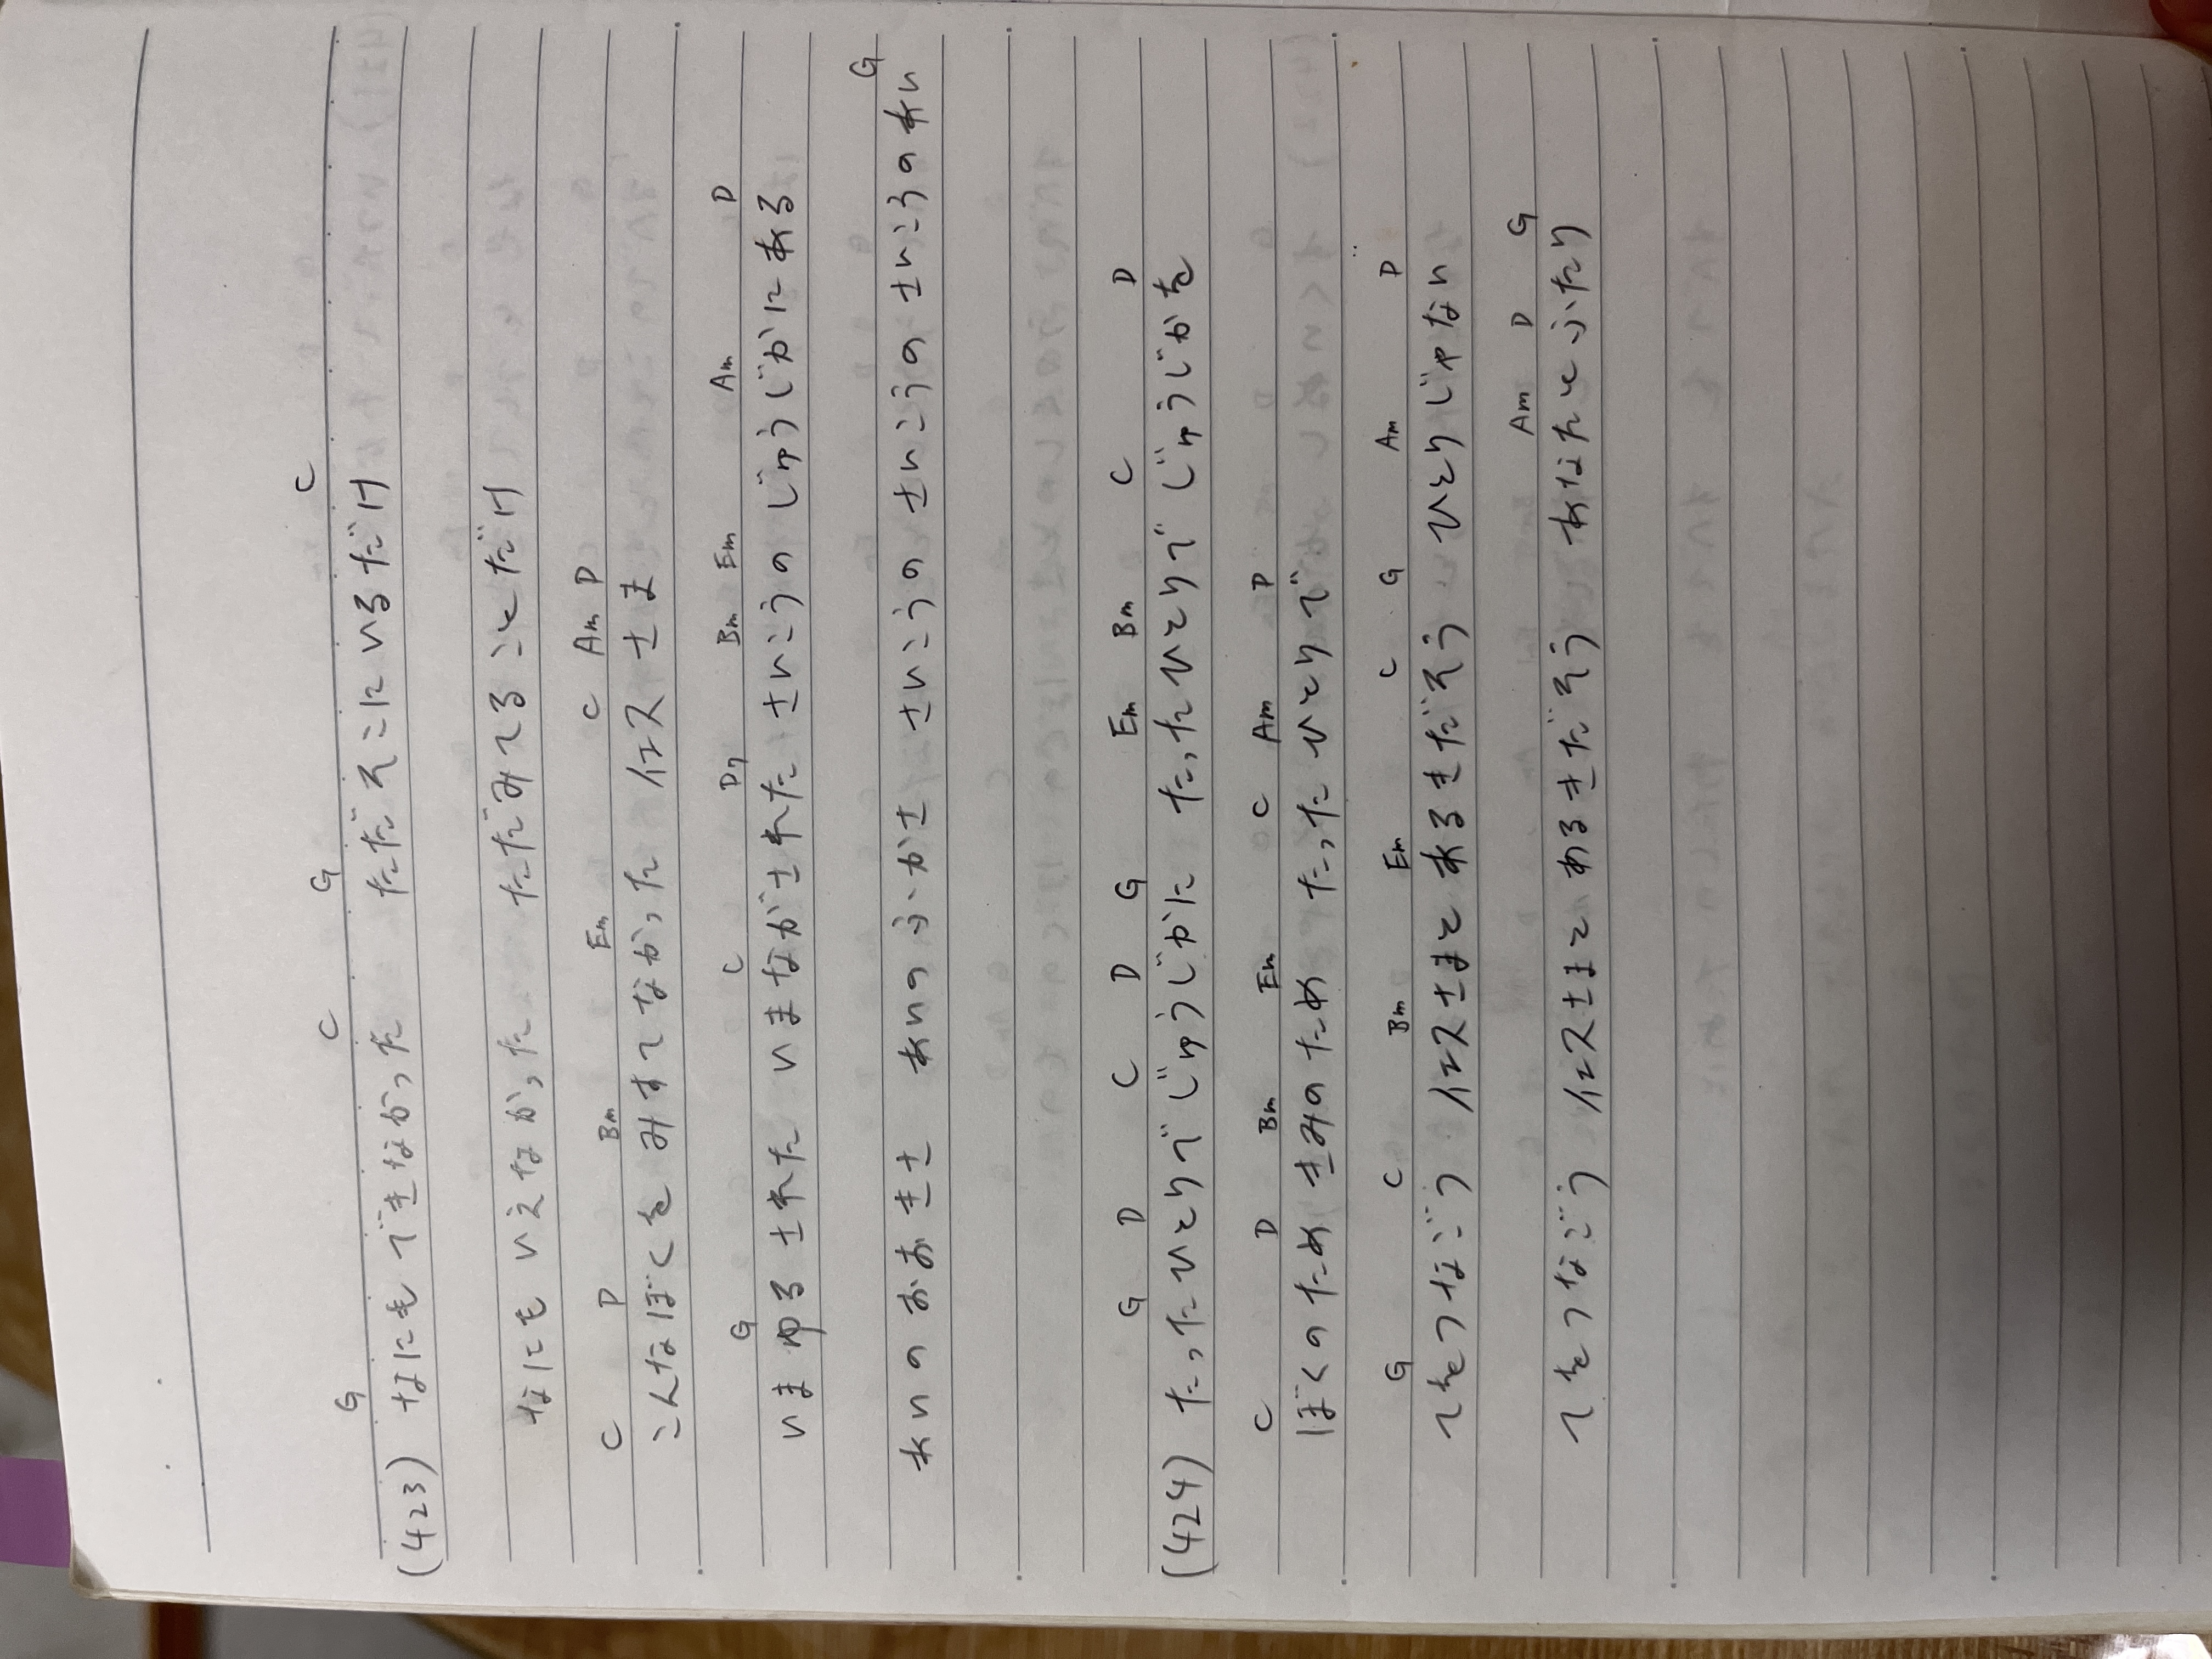 G C G C
(423) なにも できなかった ただそこにいるだけ
なにも いえなかった ただみてることだけ
C D Bm Em C Am D
こんなぼくを みすてなかった イエスさま
G C D7 Bm Em Am D
いま ゆるされた いまながされた さいこうの じゅうじかにある
G
あいのおおきさ あいのふかさ さいこうの さいこうの さいころの あい
G D C D G Em Bm C D
(424) たったひとりで じゅうじかに たったひとりで じゅうじかを
C D Bm Em C Am D
ぼくのため きみのため たったひとりで
G C Bm Em C G Am D
てをつなごう イエスさまと あるきだそう ひとりじゃない
Am D G
てをつなごう イエスさまと あるきだそう あなたとふたり